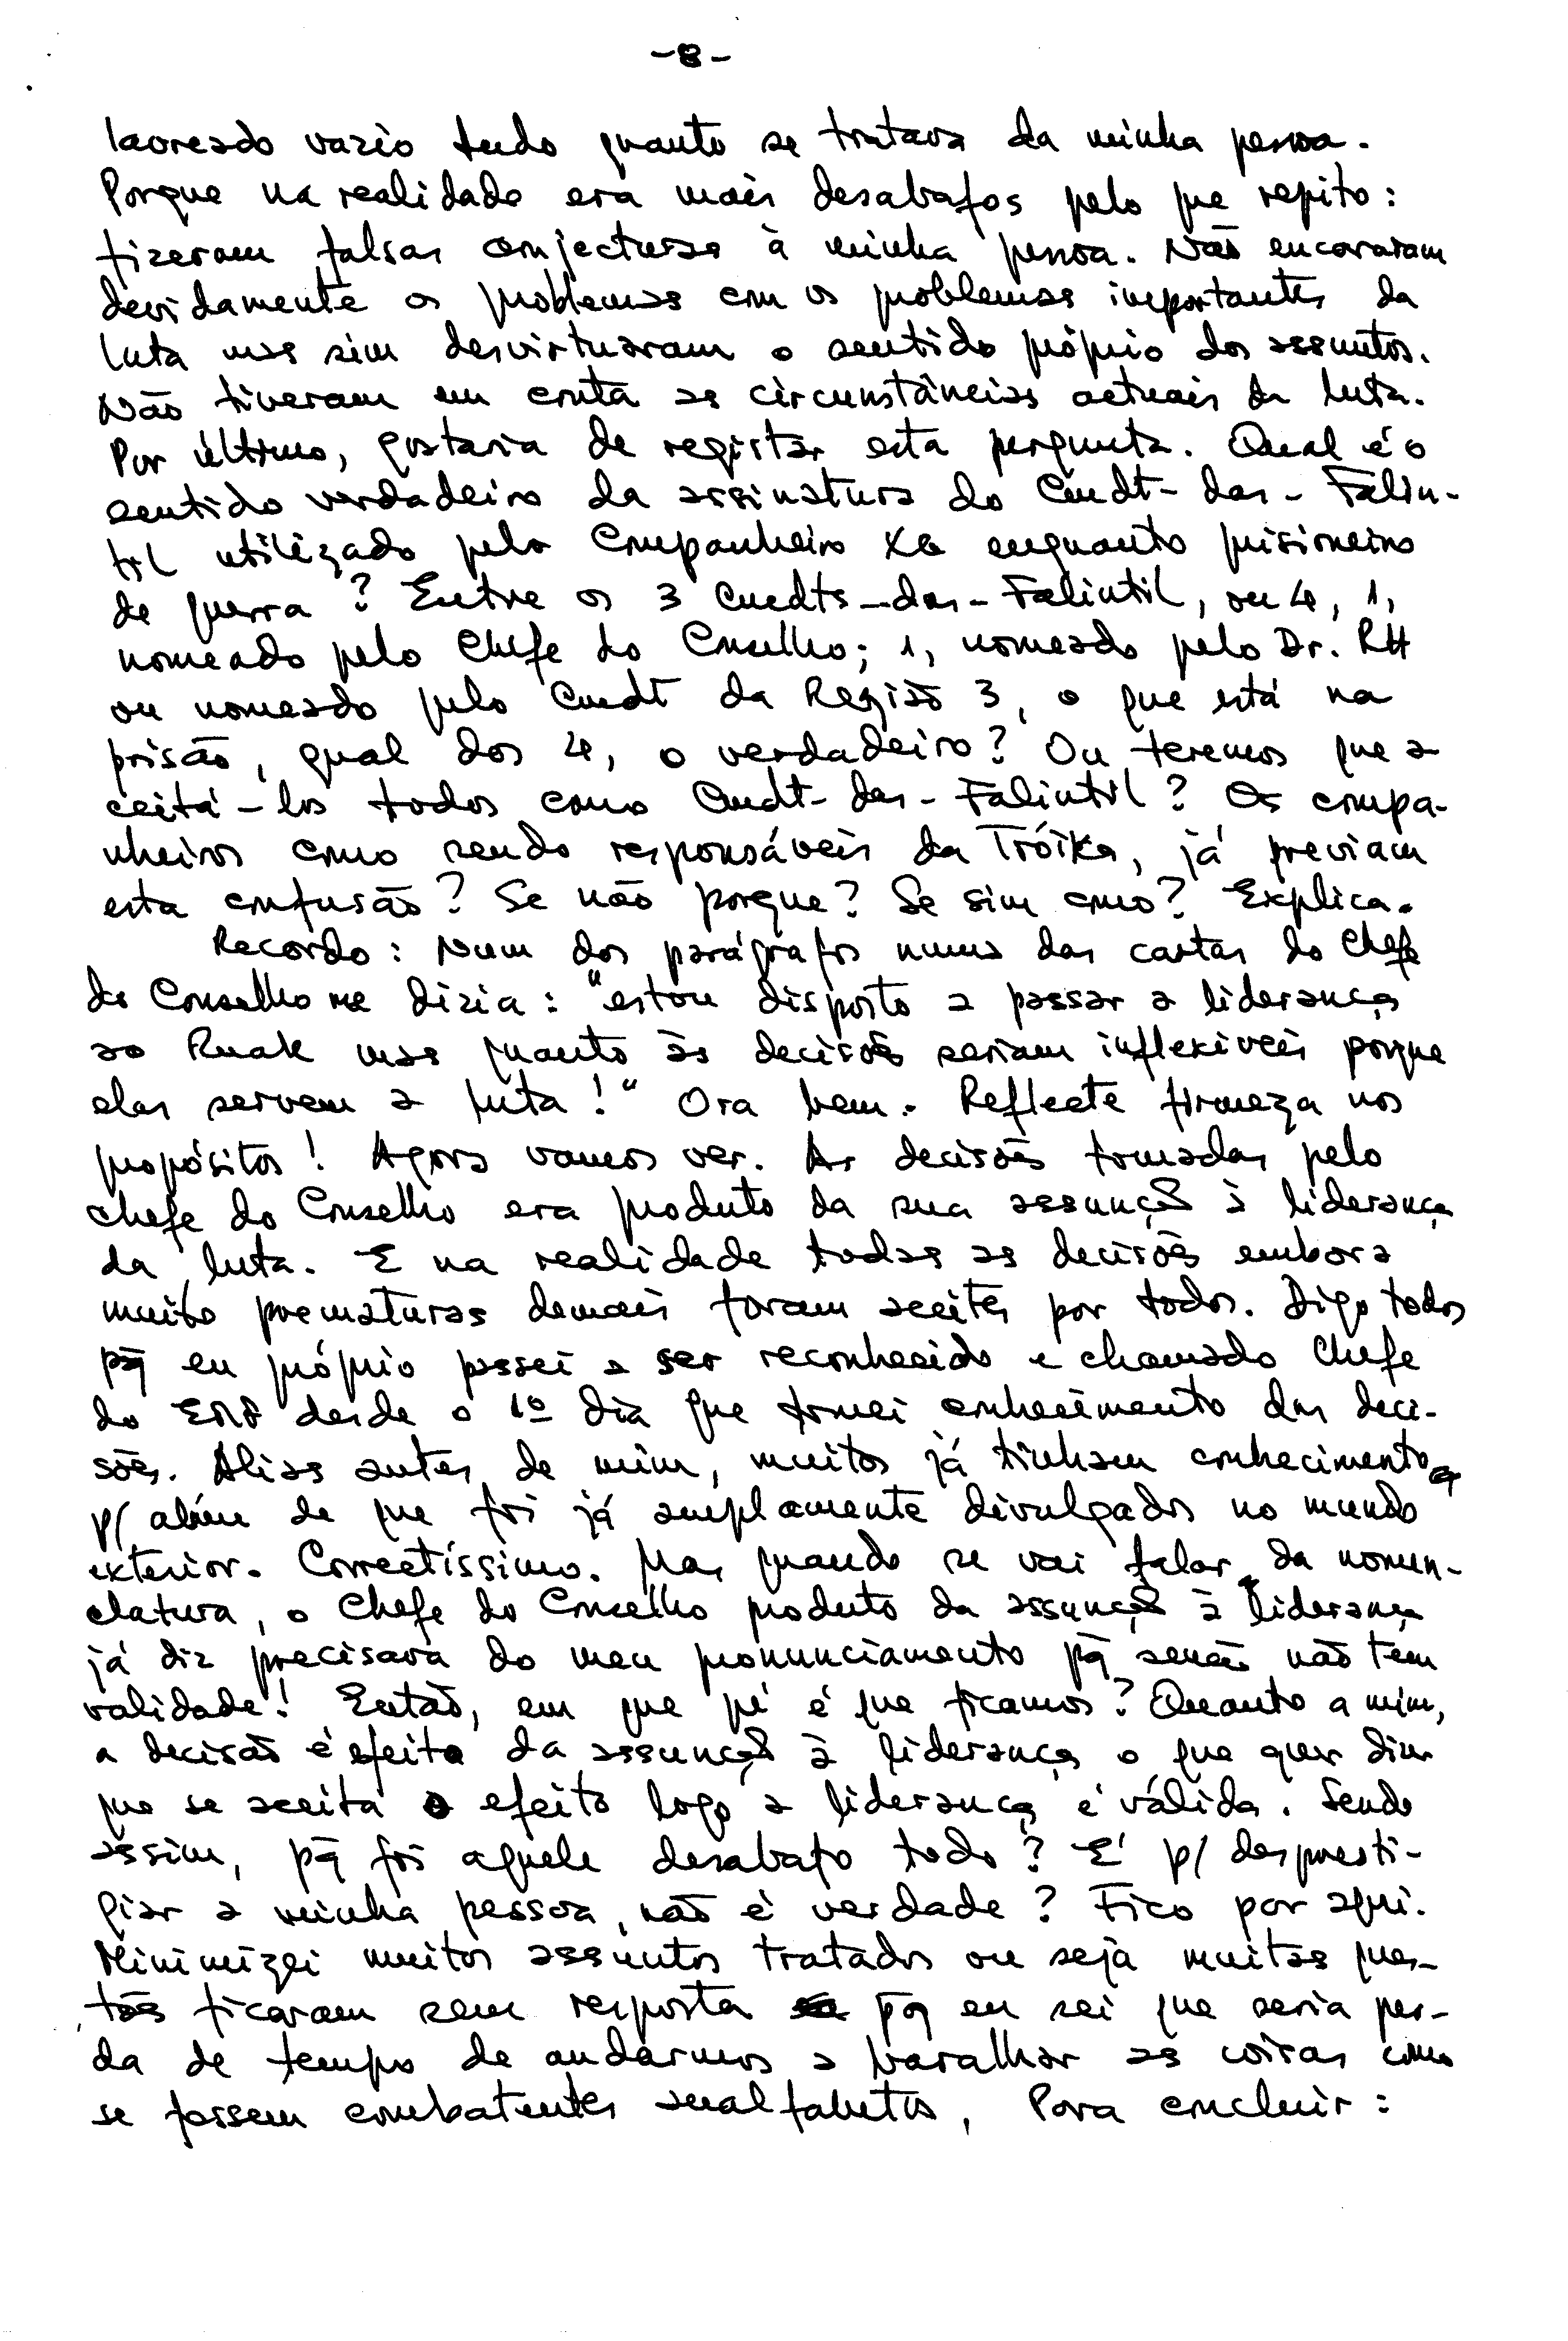 -8-
laoreado vazio tudo quanto se tratava da minha pessoa.
Porque na realidade era mais desabafos pelo que repito:
fizeram falsas conjecturas à minha pessoa. Não encararam
devidamente os problemas com os problemas importantes da
luta mas sim desvirtuaram o sentido próprio dos assuntos.
Não tiveram em conta as circunstâncias actuais da luta.
Por último, gostaria de registar esta pergunta. Qual é o
sentido verdadeiro da assinatura do Cmdt-das-Falin-
til utilizado pelo Companheiro XG enquanto prisioneiro
de guerra? Entre os 3 Cmdts-das-Falintil, ou 4, 1,
nomeado pelo Chefe do Conselho; 1, nomeado pelo Dr. RH
ou nomeado pelo Cmdt da Região 3, o que está na
prisão, qual dos 4, o verdadeiro? Ou teremos que a
ceitá-los todos como Cmdt-das-Falintil? Os compa-
nheiros como sendo responsáveis da Tróika, já previam
esta confusão? Se não porque? Se sim como? Explica.
Recordo: Num dos parágrafos numa das cartas do Chefe
do Conselho me dizia: "estou disposto a passar a liderança
ao Ruak mas quanto às decisões seriam inflexíveis porque
elas servem a luta!" Ora bem. Reflecte firmeza nos
propósitos! Agora vamos ver. As decisões tomadas pelo
Chefe do Conselho era produto da sua assunção à liderança
da luta. E na realidade todas as decisões embora
muito prematuras demais foram aceites por todos. Digo todos
pq eu próprio passei a ser reconhecido e chamado Chefe
do EMF desde o 1º dia que tomei conhecimento das deci-
sões. Alias antes de mim, muitos já tinham conhecimento
p/ além de que foi já amplamente divulgados no mundo
exterior. Correctíssimo. Mas quando se vai falar da nomen-
clatura, o Chefe do Conselho produto da assunção à liderança
já diz precisava do meu pronunciamento pq senão não tem
validade! Então, em que pé é que ficamos? Quanto a mim,
a decisão é efeito da assunção à liderança o que quer dizer
que se aceita o efeito logo a liderança é válida. Sendo
assim, pq foi aquele desabafo todo? É p/ despresti-
giar a minha pessoa, não é verdade? Fico por aqui.
Minimizei muitos assuntos tratados ou seja muitas ques-
tões ficaram sem resposta pq eu sei que seria per-
da de tempo de andarmos a baralhar as coisas como
se fossem combatentes analfabetos. Para concluir: